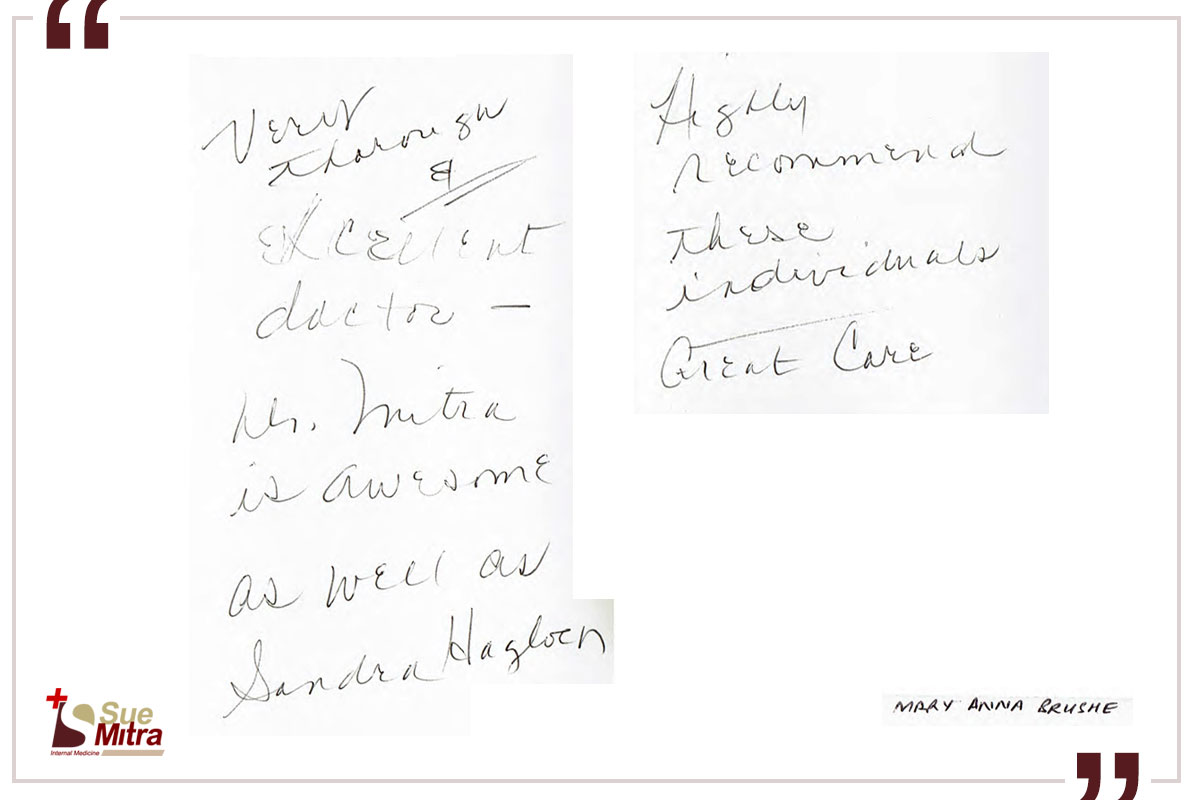 Very
thorough
&
Excellent
doctor –
Dr. Mitra
is awesome
as well as
Sandra
Highly
recommend
these
individuals
Great Care
MARY ANNA BRUSHE
Sue
Mitra
Internal Medicine